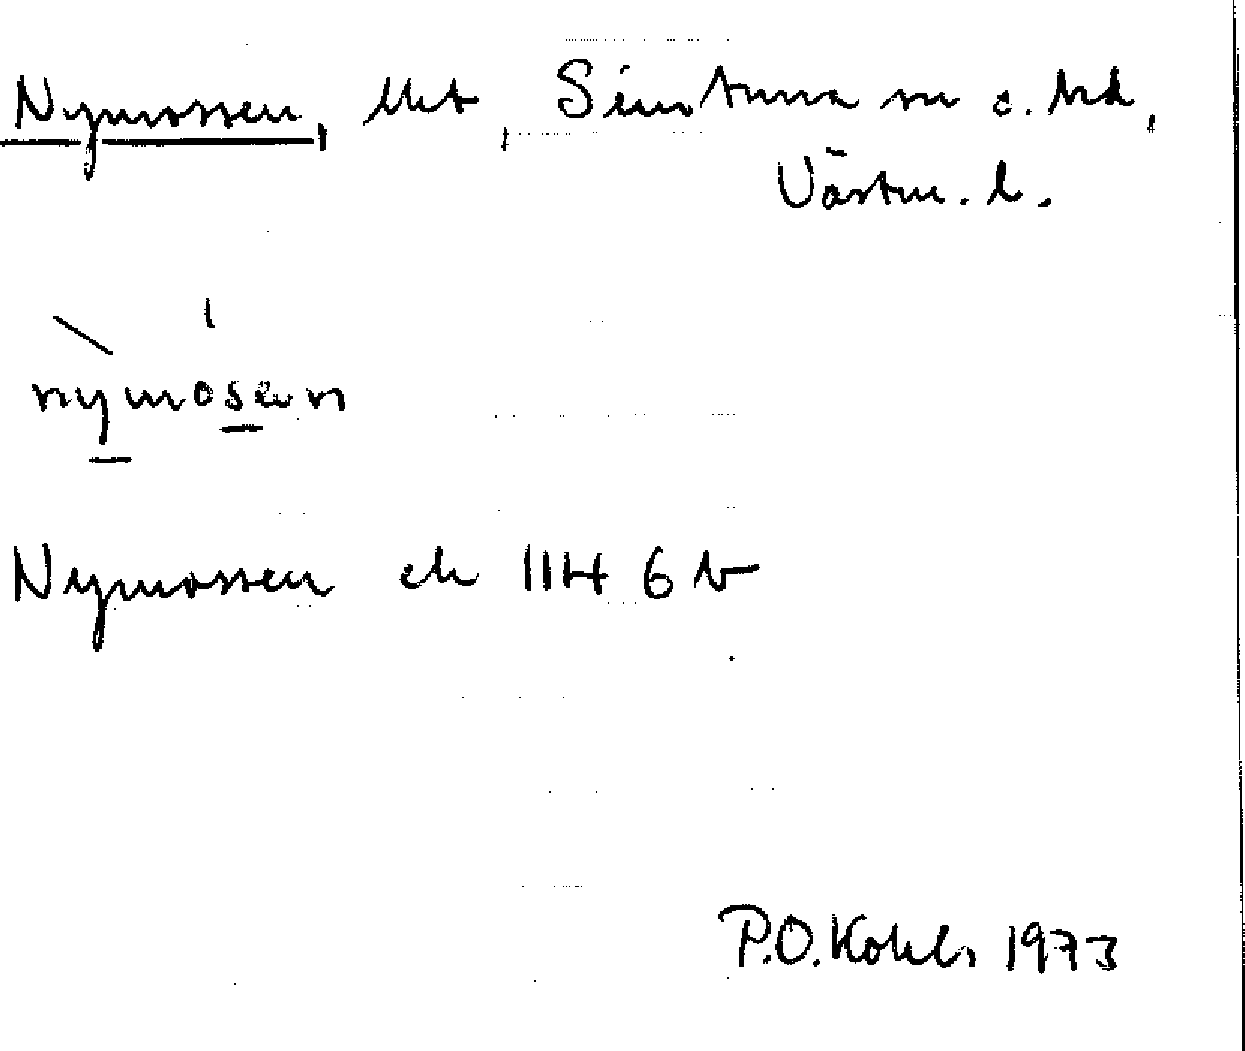 Nymossen, Ukt, Simtuna sn o. hd,
Västm. l.
nymosen
Nymossen ek 11H 6b
P.O. Kohls 1973